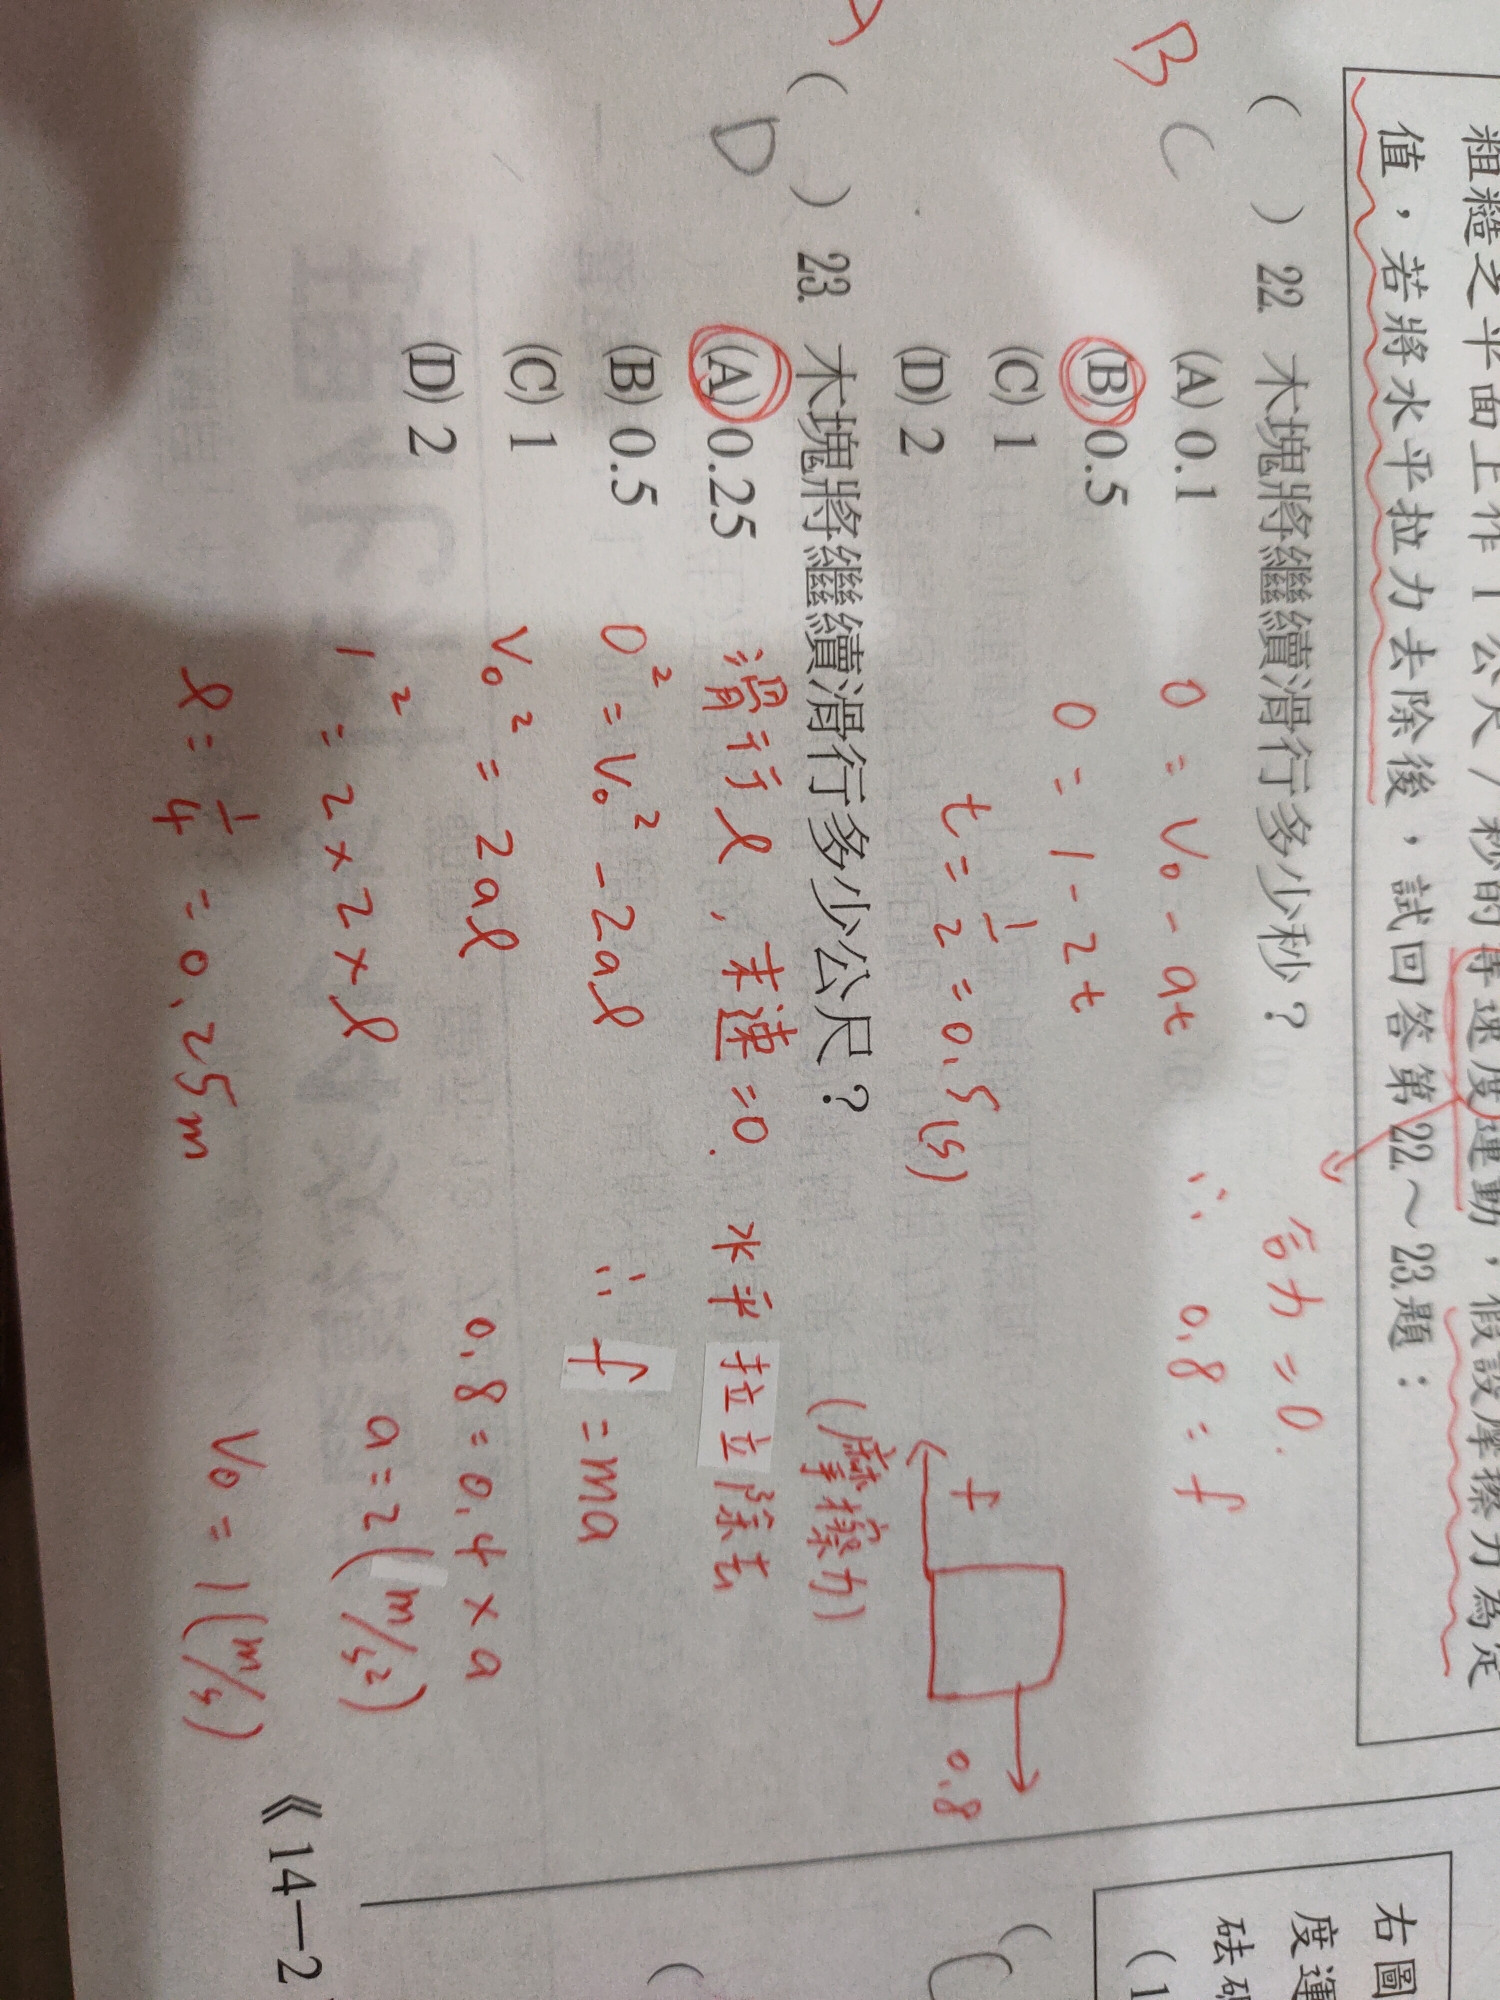 粗糙之平面上作1公尺/秒的等速度運動，假設摩擦力為定
值，若將水平拉力去除後，試回答第22.～23.題：
合力=0.
B
C
( ) 22. 木塊將繼續滑行多少秒？
(A) 0.1
(B) 0.5
(C) 1
(D) 2
0 = V₀ - at
0 = 1 - 2t
t = 1/2 = 0.5 (s)
∴ 0.8 = f
f
0.8
(摩擦力)
D
( ) 23. 木塊將繼續滑行多少公尺？
(A) 0.25
(B) 0.5
(C) 1
(D) 2
滑行 l , 末速 = 0.
0² = V₀² - 2al
V₀² = 2al
1² = 2 × 2 × l
l = 1/4 = 0.25m
水平拉立除去
∴ f = ma
0.8 = 0.4 × a
a = 2 (m/s²)
V₀ = 1 (m/s)
《14—2
右圖
度運
砝碼
(1
(
(
C